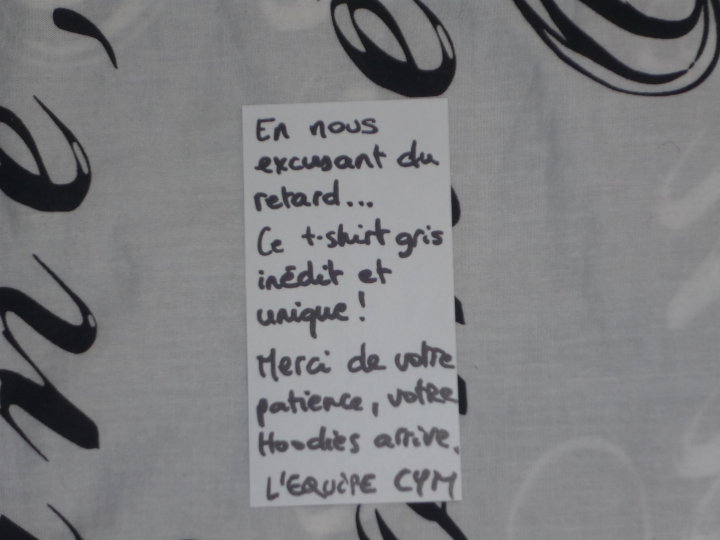 En nous
excusant du
retard...
Ce t-shirt gris
inédit et
unique!
Merci de votre
patience, votre
Hoodies arrive.
L'EQUIPE CYM